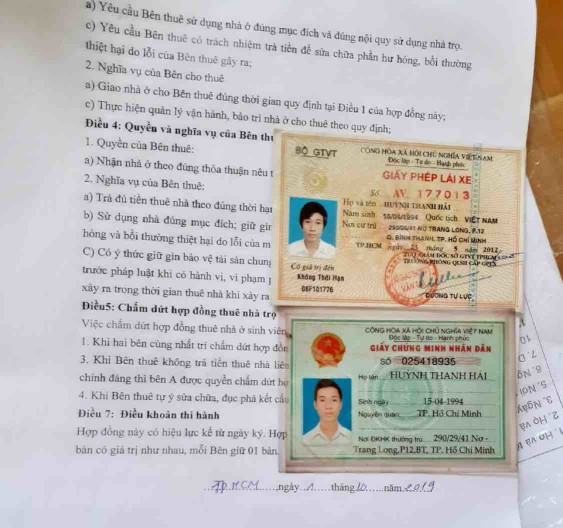 a) Yêu cầu Bên thuê sử dụng nhà ở đúng mục đích và đúng nội quy sử dụng nhà trọ.
c) Yêu cầu Bên thuê có trách nhiệm trả tiền để sửa chữa phần hư hỏng, bồi thường
thiệt hại do lỗi của Bên thuê gây ra;
2. Nghĩa vụ của Bên cho thuê
a) Giao nhà ở cho Bên thuê đúng thời gian quy định tại Điều 1 của hợp đồng này;
c) Thực hiện quản lý vận hành, bảo trì nhà ở cho thuê theo quy định;
Điều 4: Quyền và nghĩa vụ của Bên thu
1. Quyền của Bên thuê:
a) Nhận nhà ở theo đúng thỏa thuận nêu t
2. Nghĩa vụ của Bên thuê:
a) Trả đủ tiền thuê nhà theo đúng thời hạn
b) Sử dụng nhà đúng mục đích; giữ gìn
hỏng và bồi thường thiệt hại do lỗi của m
C) Có ý thức giữ gìn bảo vệ tài sản chung
trước pháp luật khi có hành vi, vi phạm p
xảy ra trong thời gian thuê nhà khi xảy ra
Điều5: Chấm dứt hợp đồng thuê nhà trọ
Việc chấm dứt hợp đồng thuê nhà ở sinh viên
1. Khi hai bên cùng nhất trí chấm dứt hợp đồn
3. Khi Bên thuê không trả tiền thuê nhà liên
chính đáng thì bên A được quyền chấm dứt hợ
4. Khi Bên thuê tự ý sửa chữa, đục phá kết cấu
Điều 7: Điều khoản thi hành
Hợp đồng này có hiệu lực kể từ ngày ký. Hợp
bản có giá trị như nhau, mỗi Bên giữ 01 bản.
TP HCM, ngày 1 tháng 10 năm 2019
BỘ GTVT
CỘNG HÒA XÃ HỘI CHỦ NGHĨA VIỆT NAM
Độc lập - Tự do - Hạnh phúc
GIẤY PHÉP LÁI XE
Số AV 177013
Họ và tên HUỲNH THANH HẢI
Năm sinh 15/04/1994 Quốc tịch VIỆT NAM
Nơi cư trú 290/29/41 NƠ TRANG LONG, P.12
Q. BÌNH THẠNH, TP. HỒ CHÍ MINH
TP.HCM ngày 23 tháng 5 năm 2012
Có giá trị đến
Không Thời Hạn
DƯƠNG TỰ LỰC
CỘNG HÒA XÃ HỘI CHỦ NGHĨA VIỆT NAM
Độc lập - Tự do - Hạnh phúc
GIẤY CHỨNG MINH NHÂN DÂN
SỐ 025418935
Họ tên HUỲNH THANH HẢI
Sinh ngày 15-04-1994
Nguyên quán TP. Hồ Chí Minh
Nơi ĐKHK thường trú 290/29/41 Nơ -
Trang Long,P12,BT, TP. Hồ Chí Minh